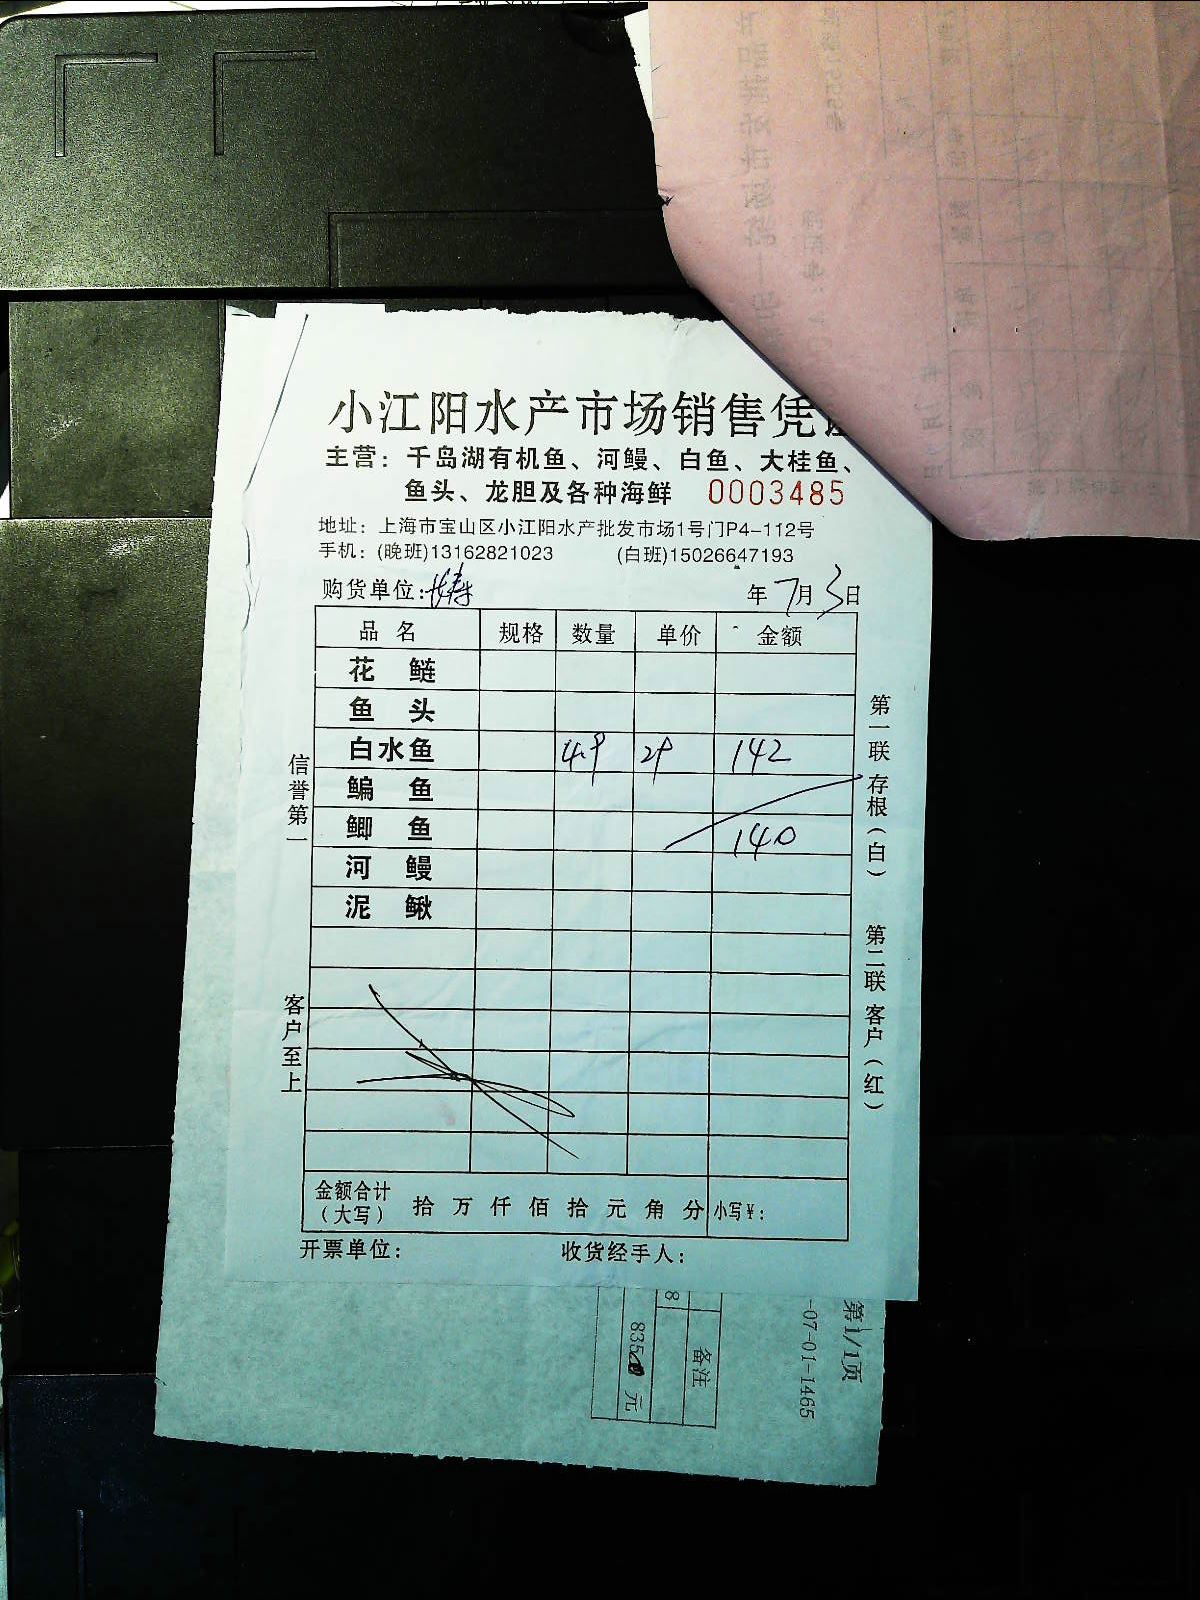 小江阳水产市场销售凭证
主营：千岛湖有机鱼、河鳗、白鱼、大桂鱼、
鱼头、龙胆及各种海鲜 0003485
地址：上海市宝山区小江阳水产批发市场1号门P4-112号
手机：(晚班)13162821023 (白班)15026647193
购货单位: 年7月3日
品名 规格 数量 单价 金额
花鲢
鱼头
白水鱼 4.9 29 142
鳊鱼
鲫鱼 140
河鳗
泥鳅
金额合计（大写） 拾 万 仟 佰 拾 元 角 分 小写¥：
开票单位： 收货经手人：
信誉第一
客户至上
第一联 存根（白）
第二联 客户（红）
第1/1页
-07-01-1465
备注
8
元